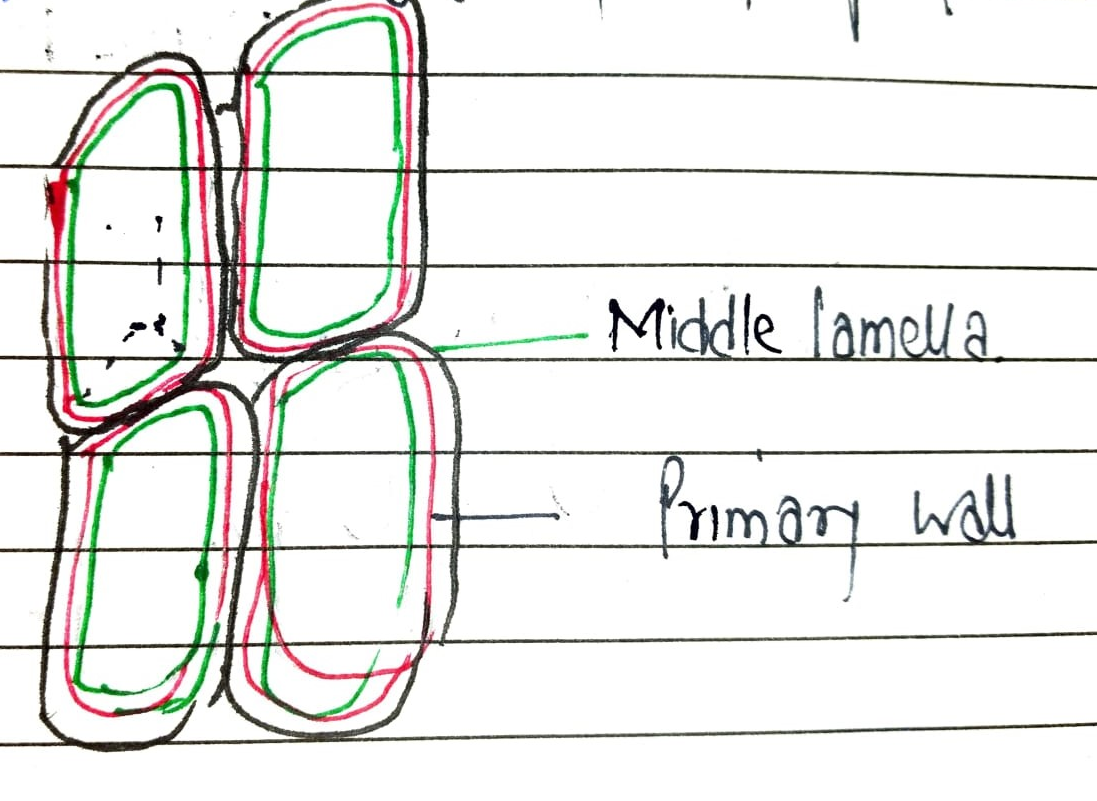 Middle lamella
Primary wall